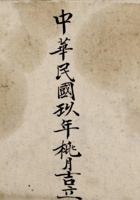 中華民國玖年桃月吉立